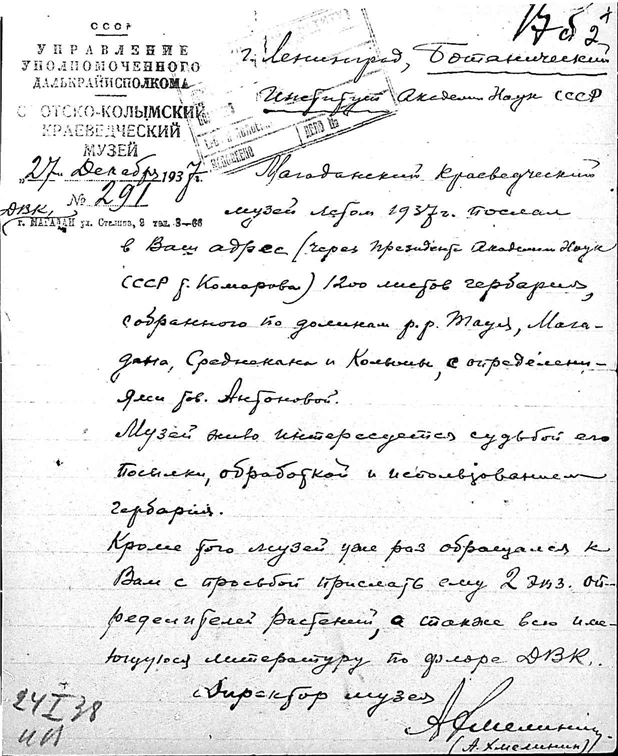 СССР
УПРАВЛЕНИЕ
УПОЛНОМОЧЕННОГО
ДАЛЬКРАЙИСПОЛКОМА
ОТСКО-КОЛЫМСКИЙ
КРАЕВЕДЧЕСКИЙ
МУЗЕЙ
„27" Декабр 1937г.
№ 291
ДВК,
г. МАГАДАН ул. Сталина, 2 тел. 3—66
г. Ленинград, Ботанический
Институт Академии Наук СССР
ДЕЛО №
Магаданский Краеведческий
музей летом 1937 г. послал
в Ваш адрес (через президента Академии Наук
СССР т. Комарова) 1200 листов гербария,
собранного по долинам р.р. Тауя, Мага-
дана, Среднекана и Колымы, с определени-
ями тов. Антоновой.
Музей живо интересуется судьбой его
посылки, обработкой и использованием
гербария.
Кроме того музей уже раз обращался к
Вам с просьбой прислать ему 2 экз. оп-
ределителей растений, а также всю име-
ющуюся литературу по флоре ДВК.
Директор музея
(А. Хмелинин)
24 I 38